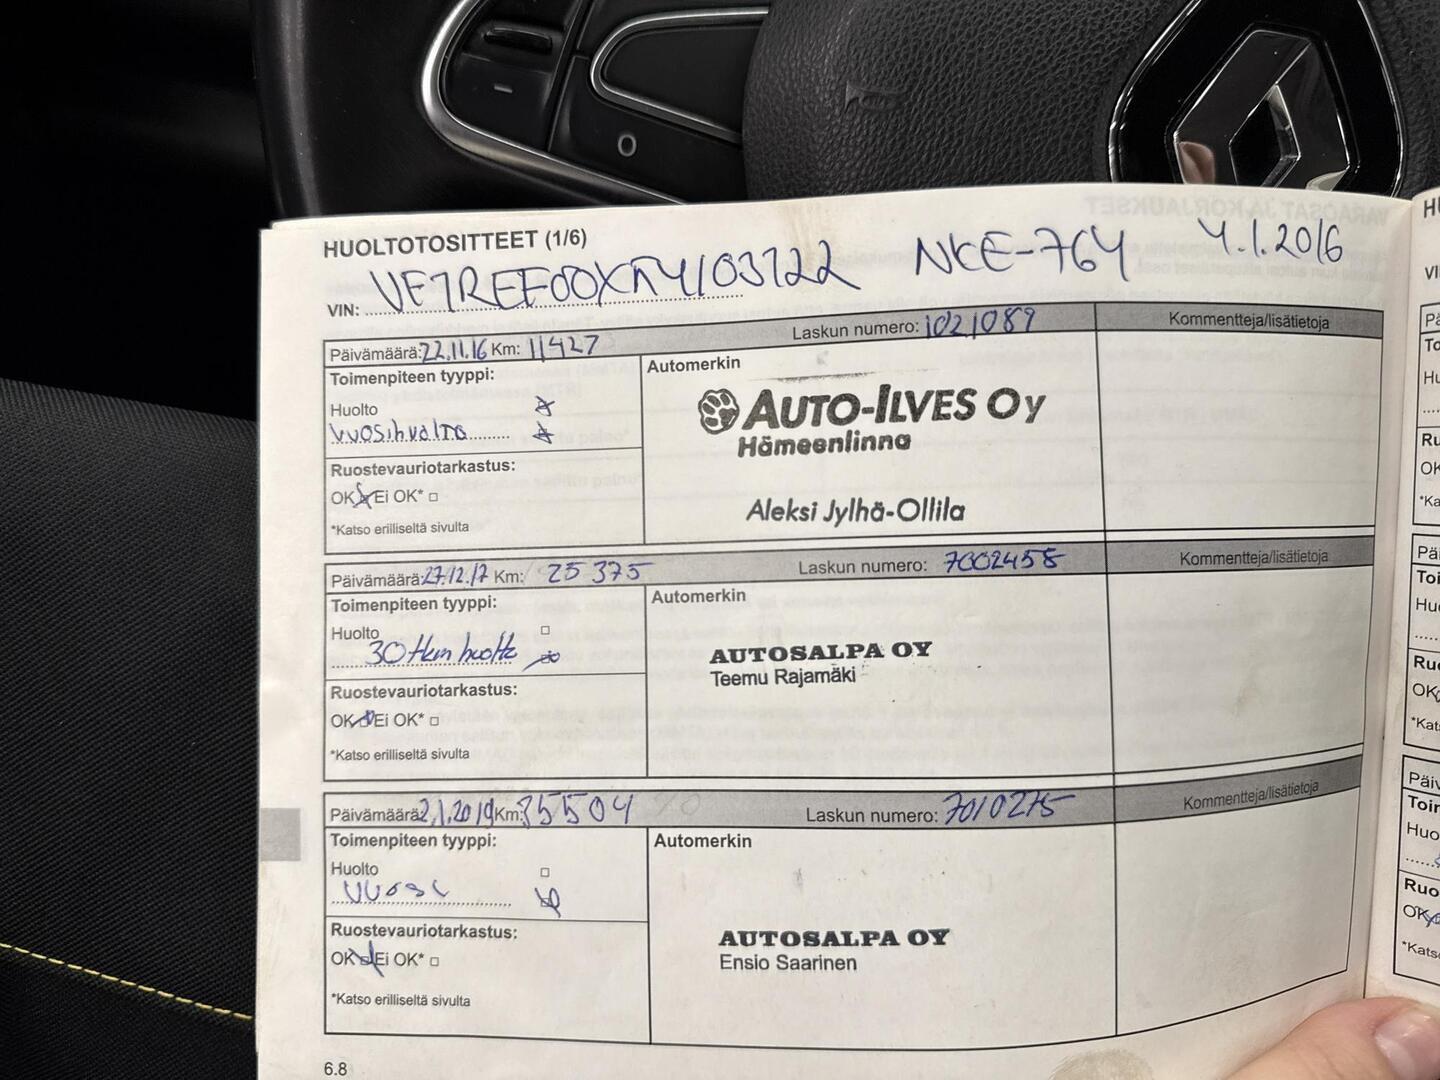 HUOLTOTOSITTEET (1/6)
NKE-764 4.1.2016
VIN:
Päivämäärä: 22.11.16 Km: 11427 Laskun numero: 1021089 Kommentteja/lisätietoja
Toimenpiteen tyyppi: Automerkin
Huolto
Vuosihuolto
AUTO-ILVES Oy
Hämeenlinna
Ruostevauriotarkastus:
OK Ei OK* □
Aleksi Jylhä-Ollila
*Katso erilliseltä sivulta
Päivämäärä: 27.12.17 Km: 25 375 Laskun numero: 7002458 Kommentteja/lisätietoja
Toimenpiteen tyyppi: Automerkin
Huolto □
30 tkm huolto
AUTOSALPA OY
Teemu Rajamäki
Ruostevauriotarkastus:
OK Ei OK* □
*Katso erilliseltä sivulta
Päivämäärä 2.1.2019 Km: 35504 Laskun numero: 7010275 Kommentteja/lisätietoja
Toimenpiteen tyyppi: Automerkin
Huolto □
Vuosi
Ruostevauriotarkastus:
AUTOSALPA OY
Ensio Saarinen
OK Ei OK* □
*Katso erilliseltä sivulta
6.8